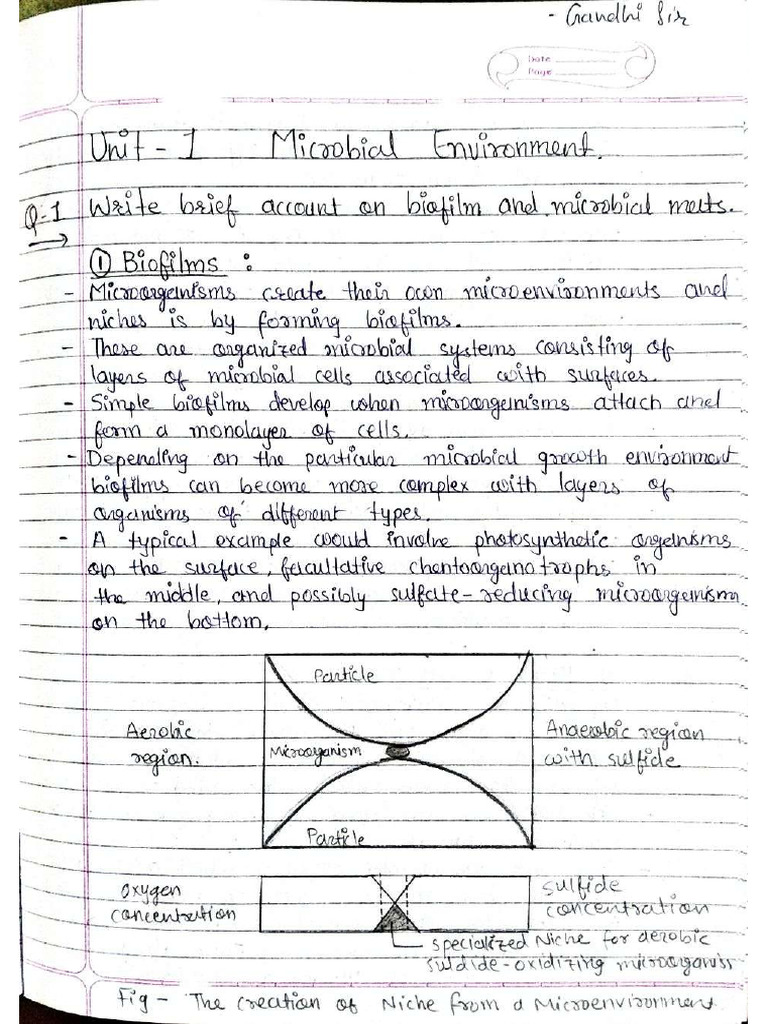 - Gandhi Sir
Date
Page
Unit - 1 Microbial Environment.
Q-1 Write brief account on biofilm and microbial mats.
① Biofilms :
- Microorganisms create their own microenvironments and
niches is by forming biofilms.
- These are organized microbial systems consisting of
layers of microbial cells associated with surfaces.
- Simple biofilms develop when microorganisms attach and
form a monolayer of cells.
- Depending on the particular microbial growth environment
biofilms can become more complex with layers of
organisms of different types.
- A typical example would involve photosynthetic organisms
on the surface, facultative chemoorganotrophs in
the middle, and possibly sulfate-reducing microorganism
on the bottom.
Particle
Aerobic
region.
Microorganism
Anaerobic region
with sulfide
Particle
Oxygen
concentration
sulfide
concentration
specialized Niche for aerobic
suldide-oxidizing microorganiss
Fig - The creation of Niche from a Microenvironment